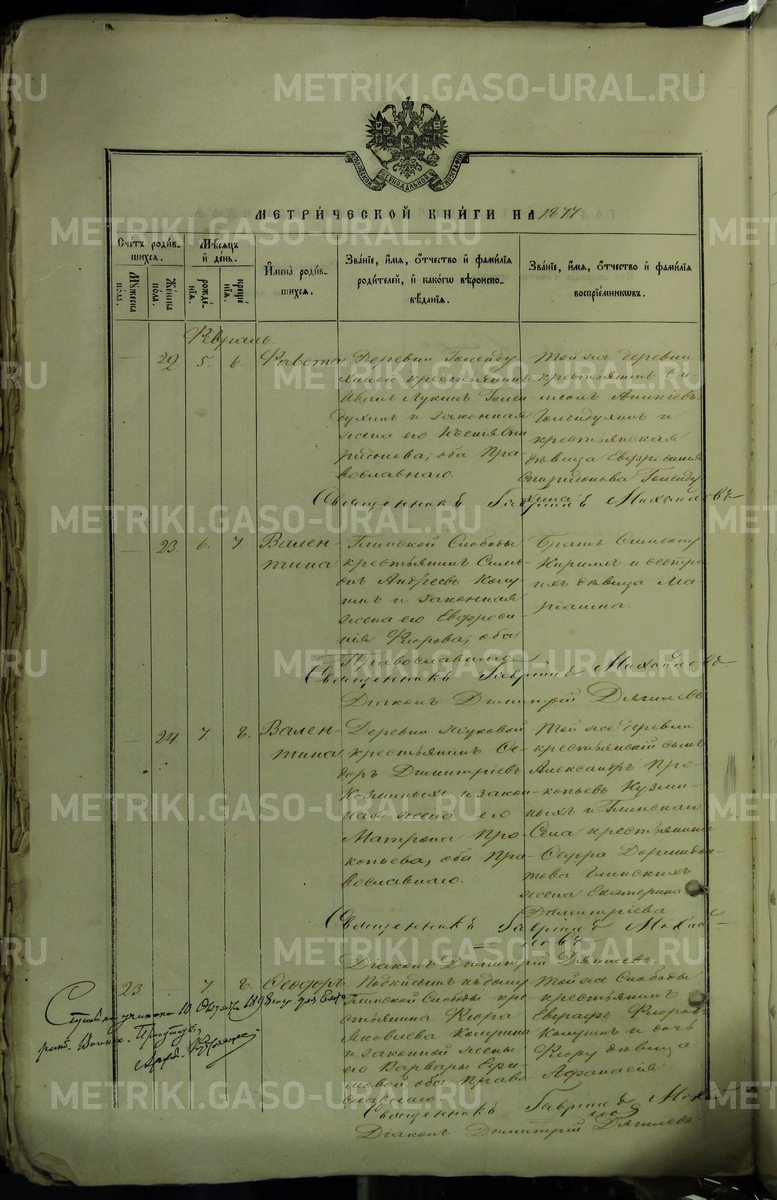 МЕТРИ́ЧЕСКОЙ КНИ́ГИ НА 1877
Сче́тъ роди́в-
шихся.
Му́жеска
по́ла.
Же́нска
по́ла.
Мѣ́сяцъ
и҆ де́нь.
рожде́-
нїѧ.
креще́-
нїѧ.
И҆мена̀ роди́в-
шихся.
Зва́нїе, и҆́мя, ѻ҆́тчество и҆ фами́лїѧ
роди́телей, и҆ како́гѡ вѣроиспо-
вѣ́данїѧ.
Зва́нїе, и҆́мя, ѻ҆́тчество и҆ фами́лїѧ
воспрїе́мникѡвъ.
Февраль.
22 5. 6.
Деревни Голенду
хиной крестьянинъ
Иванъ Лукинъ Голен
духинъ и законная
жена его Ксенія Спи
ридонова, оба Пра
вославнаго.
Той же деревни
крестьянинъ
Голендухинъ и
крестьянская
дѣвица Евфросинія
Спиридонова Голенду
хина
Священникъ Гавріилъ Михайловъ
23. 6. 7. Вален
тина
Глинской Слободы
крестьянинъ Симе
онъ Андреевъ Колу
нинъ и законная
жена его Евфроси
нія Флорова, оба
Православнаго
Братъ Симеону
Кириллъ и сестра
ихъ дѣвица Ма
ріанна.
Священникъ Гавріилъ Михайловъ
Діаконъ Димитрій Дягилевъ
24. 7. 8. Вален
тина
Деревни Жуковой
крестьянинъ Ѳе-
доръ Димитріевъ
и закон-
ная жена его
Матрона Про-
копьева, оба Пра-
вославнаго.
Той же деревни
крестьянскій сынъ
Александръ Про-
копьевъ Кузми-
ныхъ и Глинскаго
Села крестьянина
Ѳедора
Глинскихъ
жена Екатерина
Димитріева
Священникъ Гавріилъ Михай-
ловъ
Діаконъ Димитрій Дягилевъ
23. 7. 8. Ѳеодоръ
Подкидышъ къ дому
Глинской Слободы кре
стьянина Флора
Яковлева Колунина
и законной жены
его Варвары Ефи
мовой оба Право
славнаго
Той же Слободы
крестьянинъ
Евграфъ Флоровъ
Колунинъ и дочь
Флору дѣвица
Афанасія
Священникъ Гавріилъ Михай
ловъ
Діаконъ Димитрій Дягилевъ
METRIKI.GASO-URAL.RU